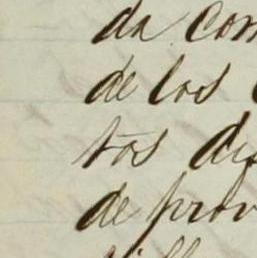 da com
de los
tos dis
de prov